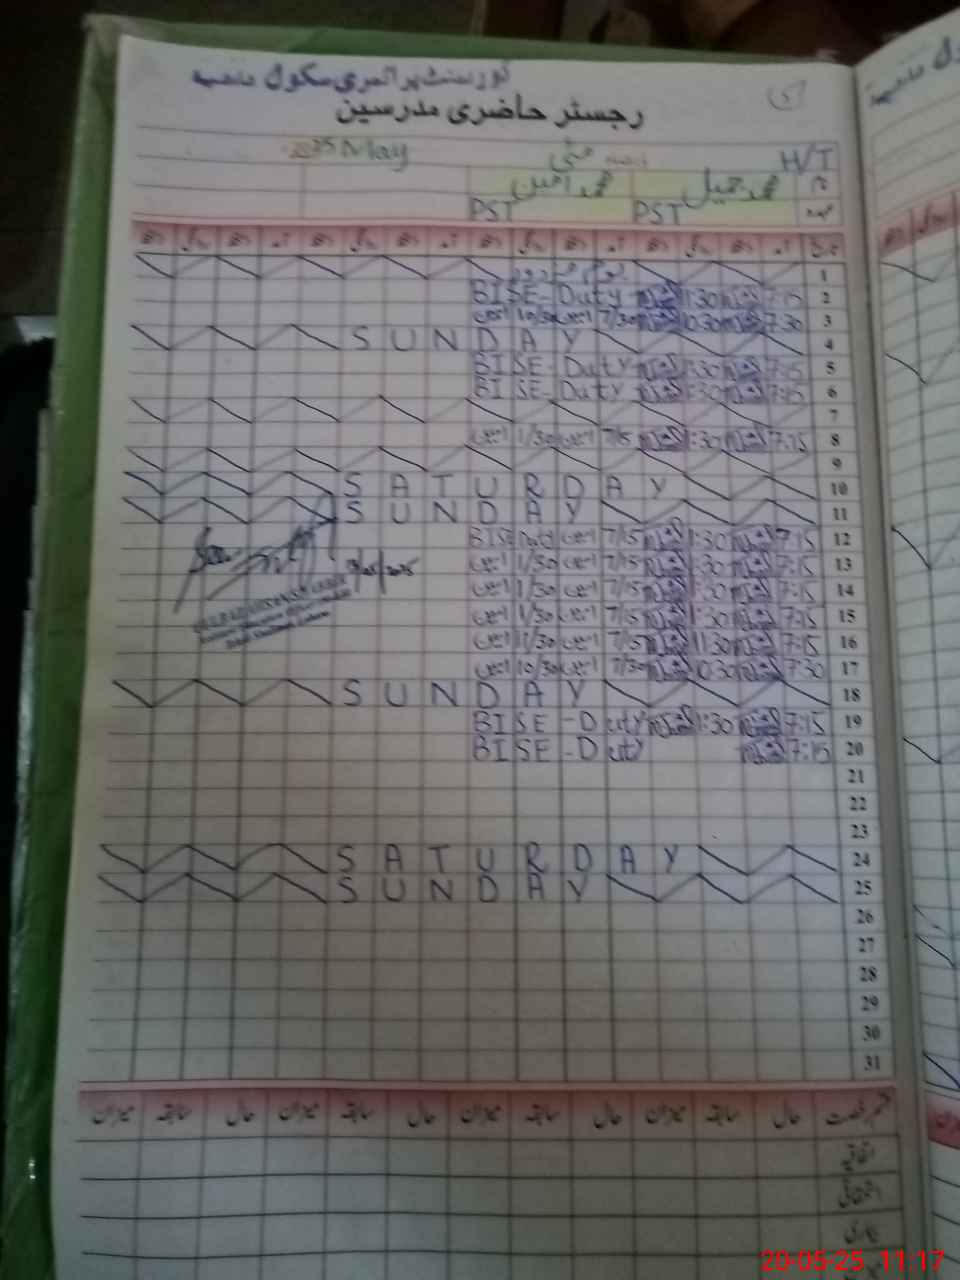 گورنمنٹ پرائمری سکول
رجسٹر حاضری مدرسین
2025 May مئی H/T
نام محمد جمیل محمد امین
عہدہ PST PST
تاریخ آمد دستخط روانگی دستخط آمد دستخط روانگی دستخط آمد دستخط روانگی دستخط آمد دستخط روانگی دستخط
1 یوم مزدور
2 7:15 1:30 BISE-Duty
3 7:30 10:30 7/30 امین 10/30 امین
4 SUNDAY
5 7:15 1:30 BISE-Duty
6 7:15 1:30 BISE-Duty
7
8 7:15 1:30 7/15 امین 1/30 امین
9
10 SATURDAY
11 SUNDAY
12 7:15 1:30 7/15 امین BISE Duty
13 7:15 1:30 7/15 امین 1/30 امین
14 7:15 1:30 7/15 امین 1/30 امین
15 7:15 1:30 7/15 امین 1/30 امین
16 7:15 11:30 7/15 امین 11/30 امین
17 7:30 10:30 7/30 امین 10/30 امین
18 SUNDAY
19 7:15 1:30 BISE-Duty
20 7:15 BISE-Duty
21
22
23
24 SATURDAY
25 SUNDAY
26
27
28
29
30
31
قسم رخصت حال سابقہ میزان حال سابقہ میزان حال سابقہ میزان حال سابقہ میزان
اتفاقیہ
استحقاقی
بیماری
20-05-25 11:17